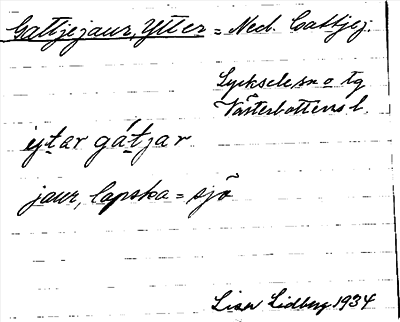 Gattjejaur, Ytter = Ned. Gattjej.
Lycksele, sn o tg
Västerbottens l.
ytar gátjar
jaur, lapska = sjö
Lisa Lidberg 1934